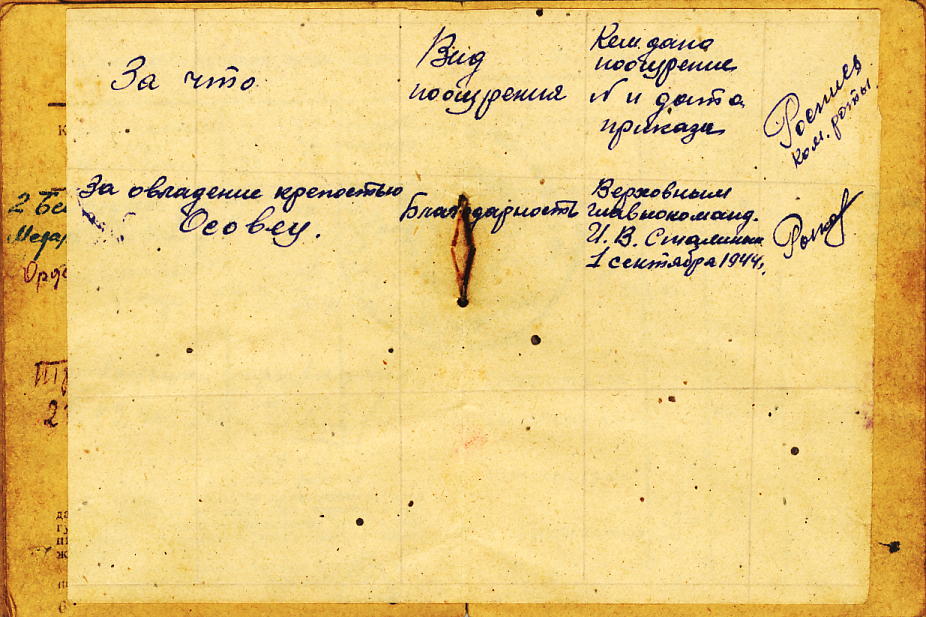 За что
Вид
поощрения
Кем дано
поощрение
N и дата
приказа
Роспись
Ком. роты
За овладение крепостью
Осовец.
Благодарность
Верховным
главнокоманд.
И. В. Сталиным
1 сентября 1944г.
2
Орде
2